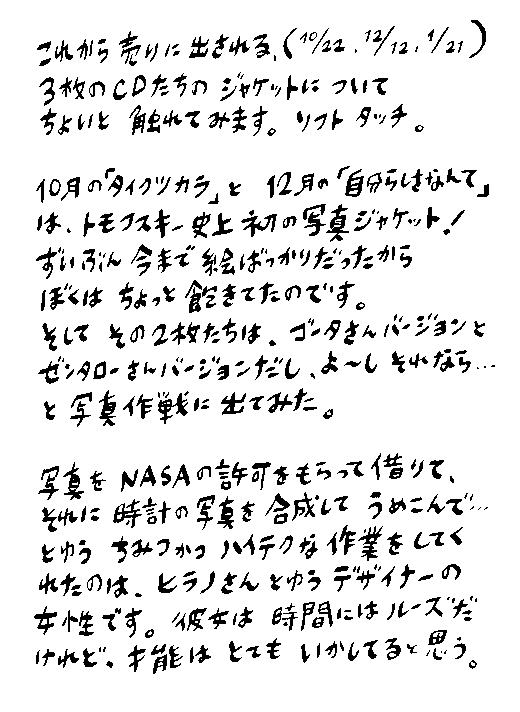 これから売りに出される、(10/22、12/12、1/21)
3枚のCDたちの ジャケットに ついて
ちょいと 触れてみます。ソフト タッチ。
10月の「タイクツカラ」と 12月の「自分らしさなんて」
は、トモフスキー史上 初の写真ジャケット!
ずいぶん 今まで 絵ばっかりだったから
ぼくは ちょっと 飽きてたのです。
そして その2枚たちは、ゴータさんバージョンと
ゼンタローさんバージョンだし、よ〜し それなら…
と 写真作戦に 出てみた。
写真を NASAの許可をもらって借りて、
それに 時計の写真を 合成して うめこんで…
とゆう ちみつかつ ハイテクな 作業をしてく
れたのは、ヒラノさん とゆう デザイナーの
女性です。彼女は 時間には ルーズだ
けれど、才能は とても いかしてると思う。